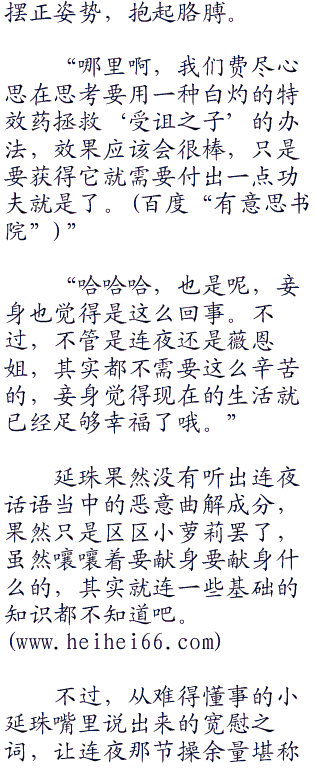 摆正姿势，抱起胳膊。
“哪里啊，我们费尽心
思在思考要用一种白灼的特
效药拯救‘受诅之子’的办
法，效果应该会很棒，只是
要获得它就需要付出一点功
夫就是了。(百度“有意思书
院”)”
“哈哈哈，也是呢，妾
身也觉得是这么回事。不
过，不管是连夜还是薇恩
姐，其实都不需要这么辛苦
的，妾身觉得现在的生活就
已经足够幸福了哦。”
延珠果然没有听出连夜
话语当中的恶意曲解成分，
果然只是区区小萝莉罢了，
虽然嚷嚷着要献身要献身什
么的，其实就连一些基础的
知识都不知道吧。
(www.heihei66.com)
不过，从难得懂事的小
延珠嘴里说出来的宽慰之
词，让连夜那节操余量堪称